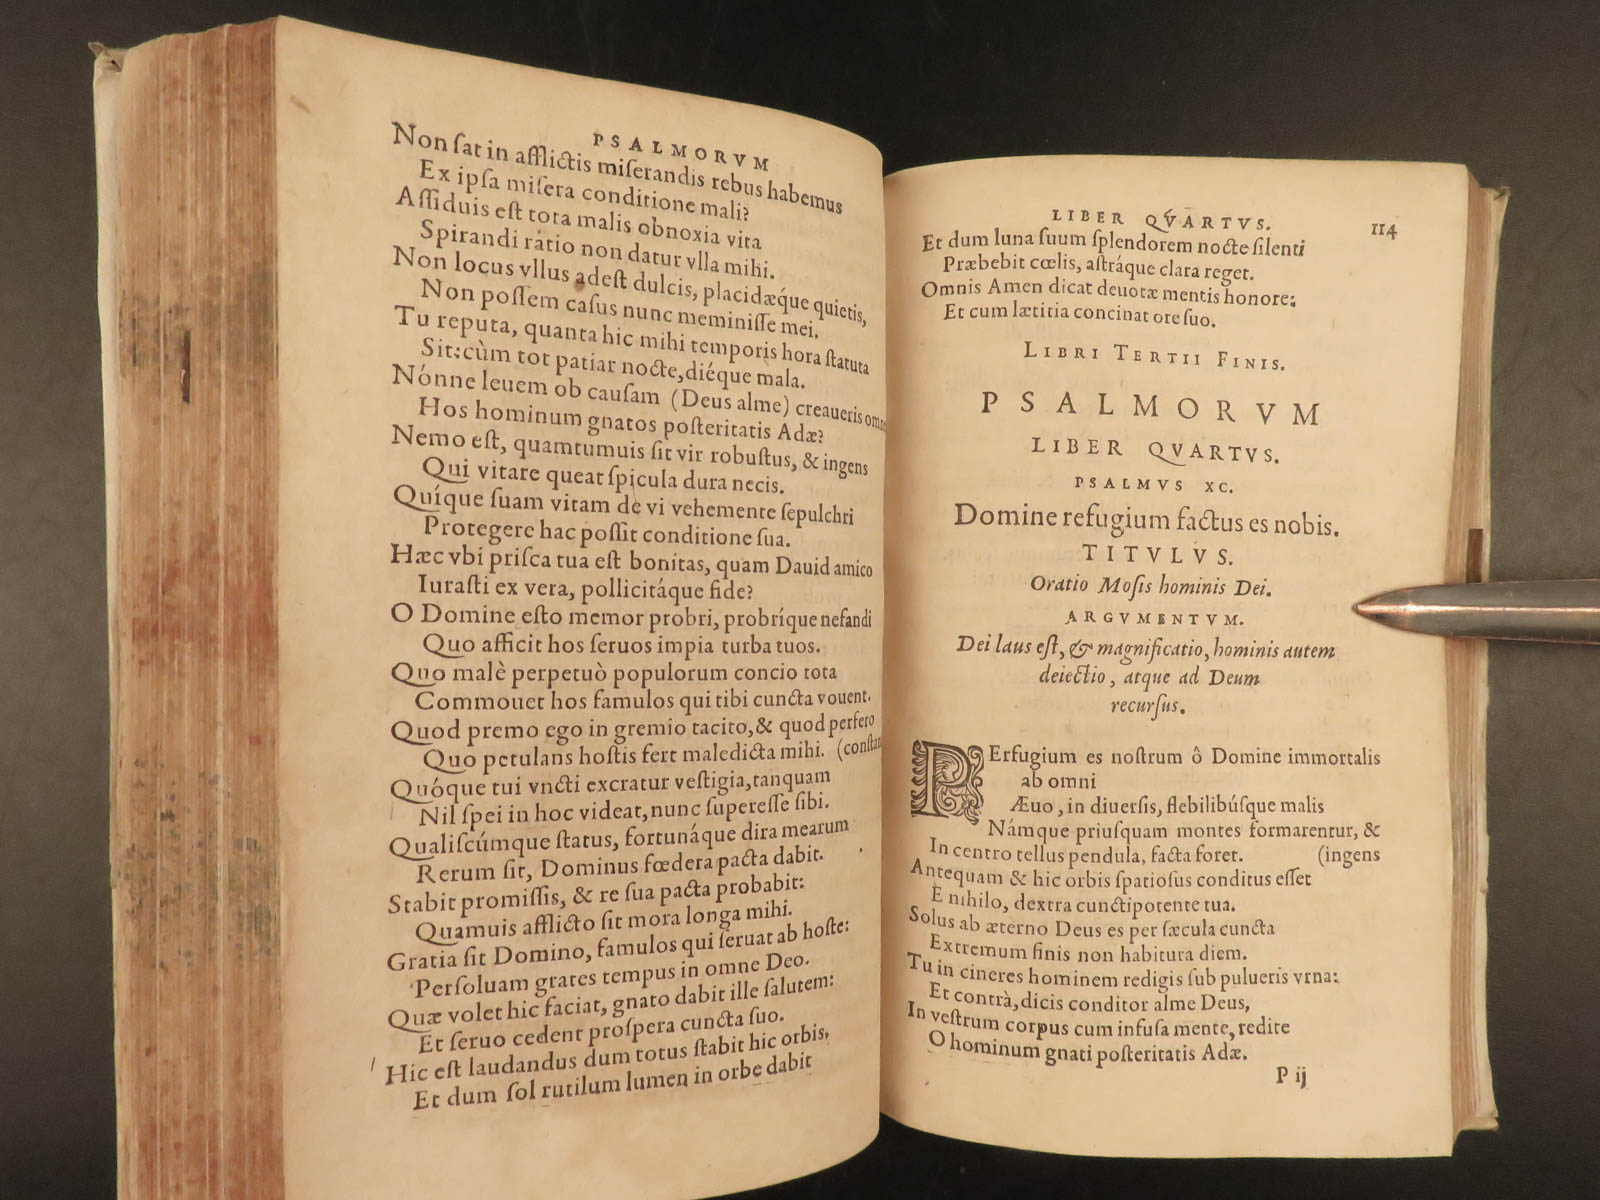 PSALMORVM
Non ſat in afflictis miſerandis rebus habemus
Ex ipſa miſera conditione mali?
Aſſiduis eſt tota malis obnoxia vita
Spirandi rátio non datur vlla mihi.
Non locus vllus adeſt dulcis, placidæque quietis,
Non poſſem caſus nunc meminiſſe mei.
Tu reputa, quanta hic mihi temporis hora ſtatuta
Sit: cùm tot patiar nocte, diéque mala.
Nónne leuem ob cauſam (Deus alme) creaueris
Hos hominum gnatos poſteritatis Adæ?
Nemo eſt, quamtumuis ſit vir robuſtus, & ingens
Qui vitare queat ſpicula dura necis.
Quíque ſuam vitam de vi vehemente ſepulchri
Protegere hac poſſit conditione ſua.
Hæc vbi priſca tua eſt bonitas, quam Dauid amico
Iuraſti ex vera, pollicitáque fide?
O Domine eſto memor probri, probríque nefandi
Quo afficit hos ſeruos impia turba tuos.
Quo malè perpetuò populorum concio tota
Commouet hos famulos qui tibi cuncta vouent.
Quod premo ego in gremio tacito, & quod perfero
Quo petulans hoſtis fert maledicta mihi. (conſtan
Quóque tui vncti excratur veſtigia, tanquam
Nil ſpei in hoc videat, nunc ſupereſſe ſibi.
Qualiſcúmque ſtatus, fortunáque dira mearum
Rerum ſit, Dominus fœdera pacta dabit.
Stabit promiſſis, & re ſua pacta probabit:
Quamuis afflicto ſit mora longa mihi.
Gratia ſit Domino, famulos qui ſeruat ab hoſte:
Perſoluam grates tempus in omne Deo.
Quæ volet hic faciat, gnato dabit ille ſalutem:
Et ſeruo cedent proſpera cuncta ſuo.
Hic eſt laudandus dum totus ſtabit hic orbis,
Et dum ſol rutilum lumen in orbe dabit
LIBER QVARTVS. 114
Et dum luna ſuum ſplendorem nocte ſilenti
Præbebit cœlis, aſtráque clara reget.
Omnis Amen dicat deuotæ mentis honore;
Et cum lætitia concinat ore ſuo.
LIBRI TERTII FINIS.
PSALMORVM
LIBER QVARTVS.
PSALMVS XC.
Domine refugium factus es nobis.
TITVLVS.
Oratio Moſis hominis Dei.
ARGVMENTVM.
Dei laus eſt, & magnificatio, hominis autem
deiectio, atque ad Deum
recurſus.
PErfugium es noſtrum ô Domine immortalis
ab omni
Æuo, in diuerſis, flebilibúſque malis
Námque priuſquam montes formarentur, &
In centro tellus pendula, facta foret. (ingens
Antequam & hic orbis ſpatioſus conditus eſſet
E nihilo, dextra cunctipotente tua.
Solus ab æterno Deus es per ſæcula cuncta
Extremum finis non habitura diem.
Tu in cineres hominem redigis ſub pulueris vrna:
Et contrà, dicis conditor alme Deus,
In veſtrum corpus cum infuſa mente, redite
O hominum gnati poſteritatis Adæ.
P ij